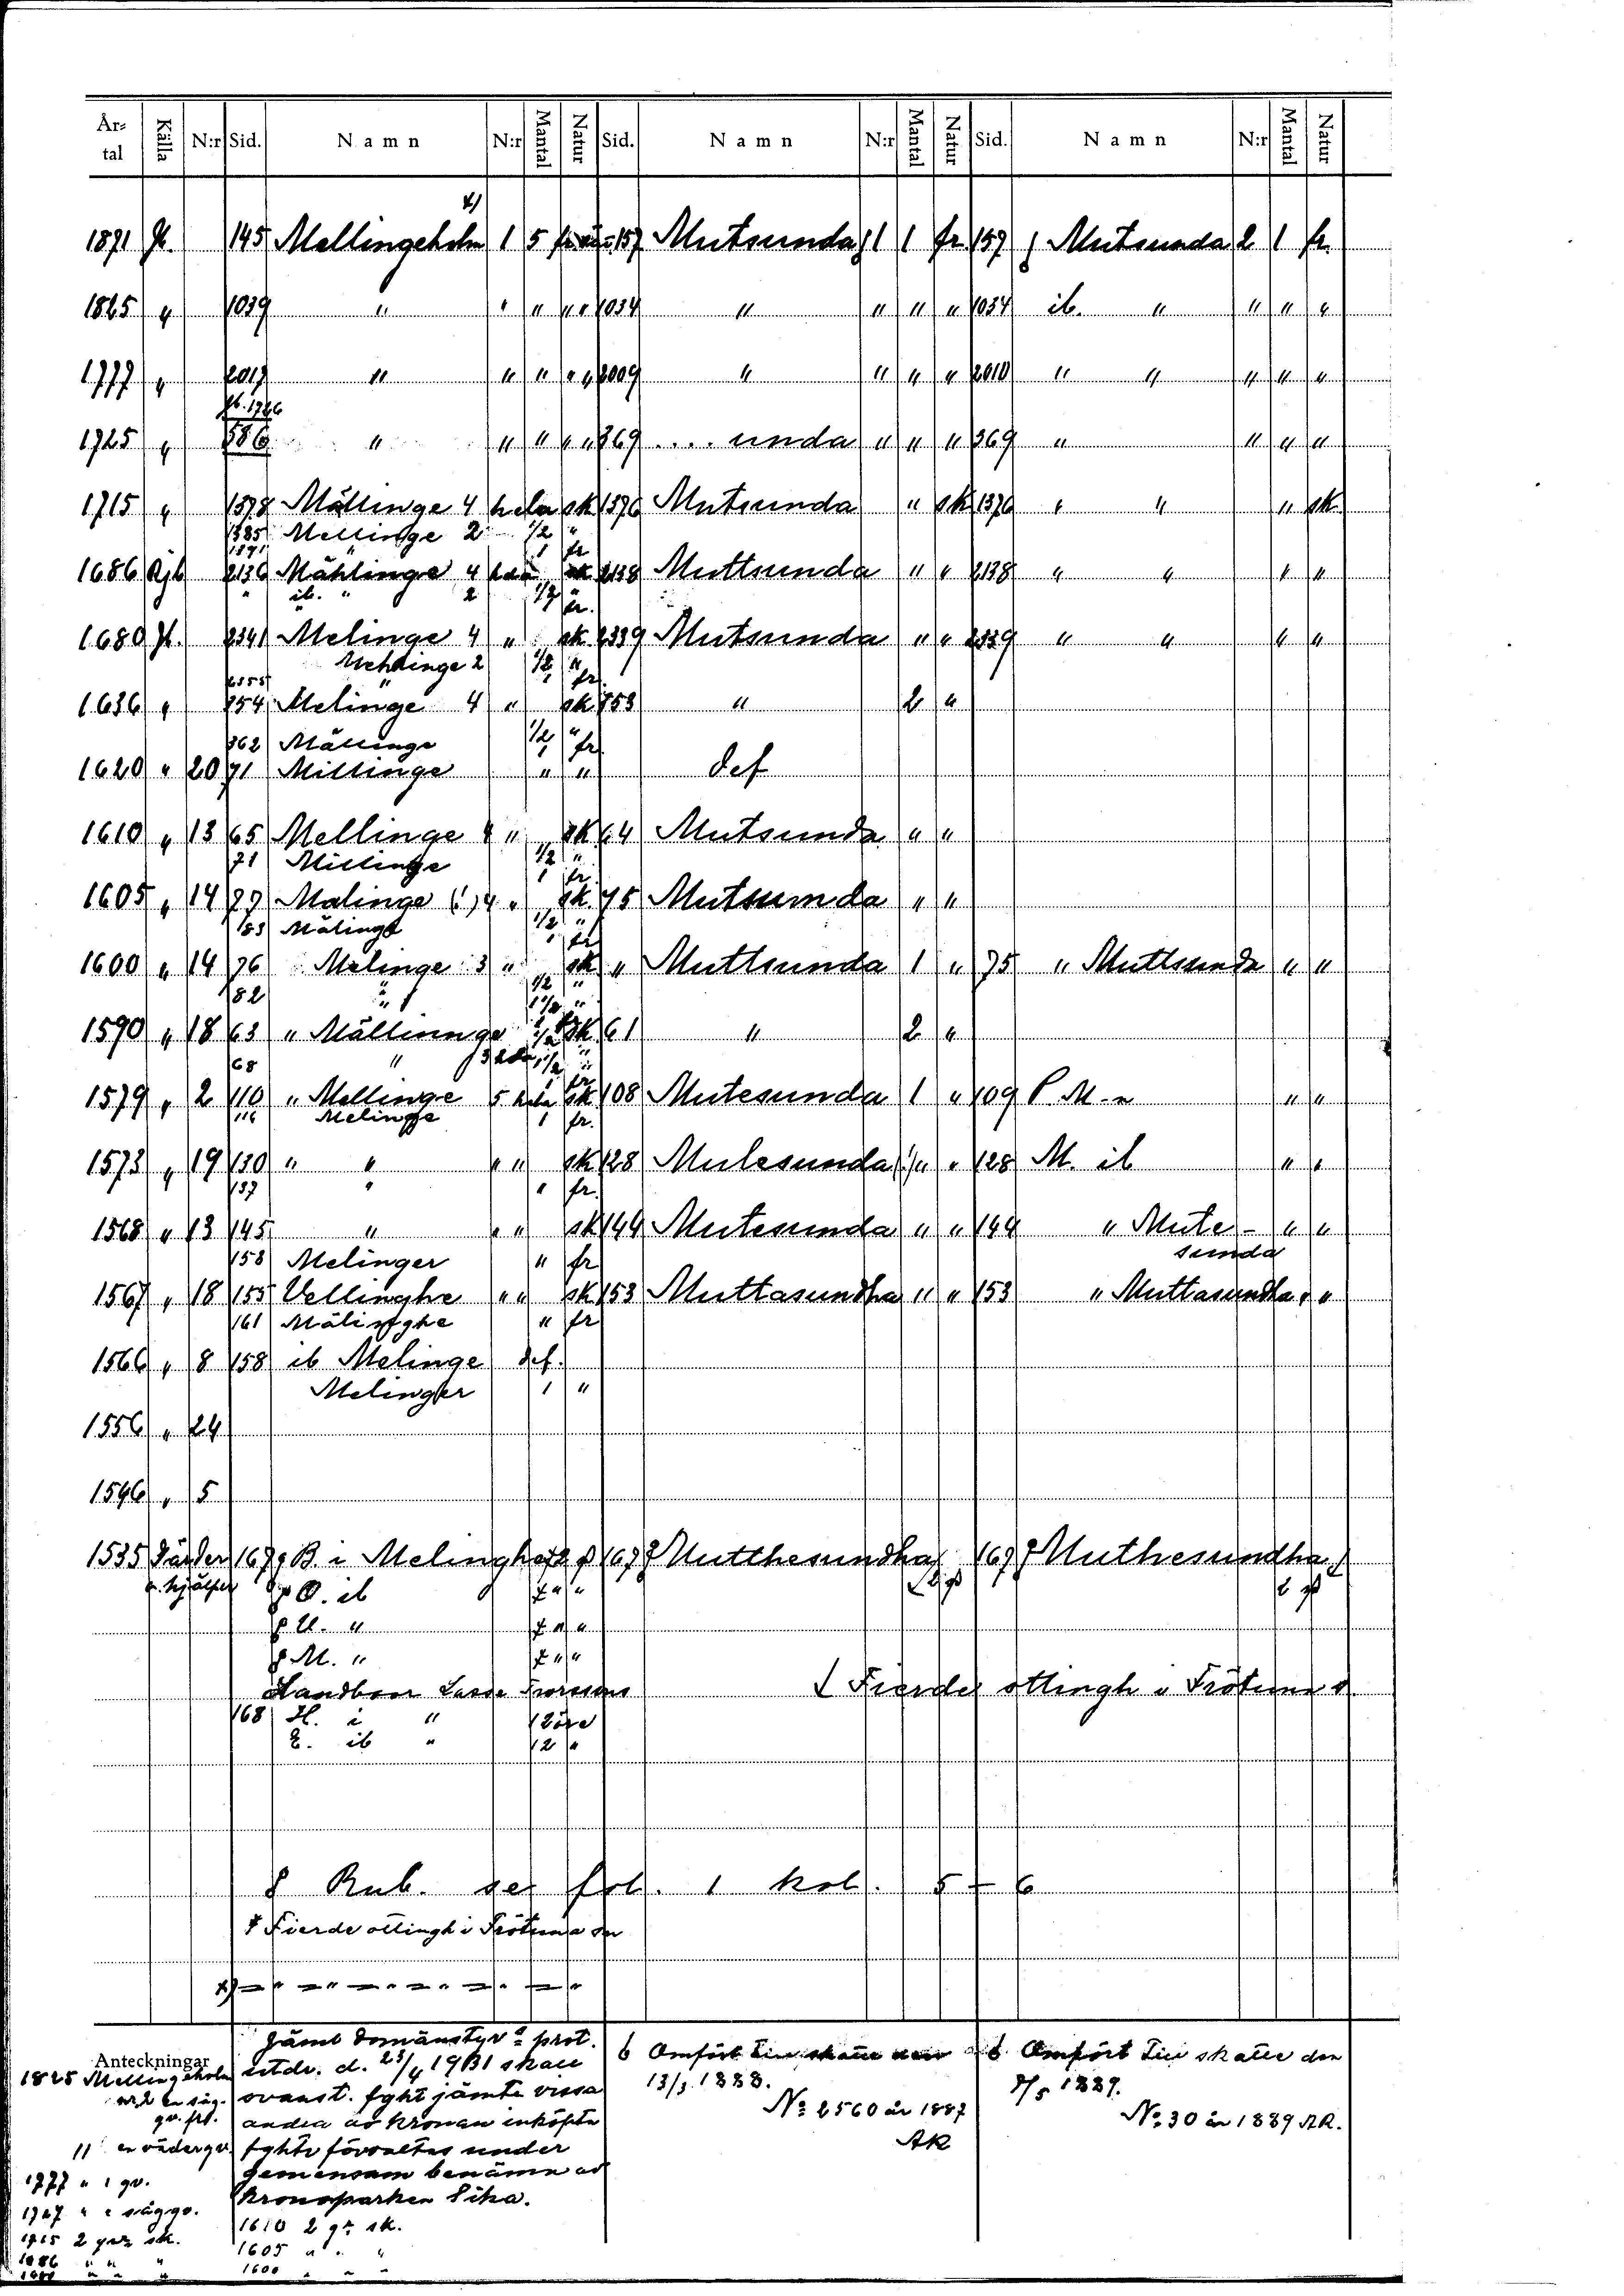 År-tal Källa N:r Sid. Namn N:r Mantal Natur Sid. Namn N:r Mantal Natur Sid. Namn N:r Mantal Natur
x)
1871 Jb. 145 Mellingeholm 1 5 157 Mutsunda 1 1 fr. 157 Mutsunda 2 1 fr.
1825 " 1039 " " " " " 1034 " " " " 1034 ib. " " " "
1777 " 2017 " " " " " 2009 " " " " 2010 " " " " "
Jb. 1726
1725 " 586 " " " " " 369 .... unda " " " 369 " " " "
1715 " 1378 Mällinge 4 hela sk 1376 Mutsunda " sk 1376 " " " sk.
1385 Mellinge 2 1/2 "
1391 " 1 fr
1686 Rjb 2136 Mählinge 4 hela sk 2138 Muttsunda " " 2138 " " " "
" ib. " 2 1/2 fr.
1680 Jb. 2341 Melinge 4 " sk. 2339 Mutsunda " " 2339 " " " "
Mehlinge 2 1/2 "
2355 " 1 fr.
1636 " 354 Melinge 4 " sk. 353 " 2 "
362 Mällinge 1/2 "
1 fr
1620 " 20 71 Millinge " " def
1610 " 13 65 Mellinge 4 " sk 64 Mutsunda " "
71 Millinge 1/2 "
1 fr.
1605 " 14 77 Malinge (!) 4 " sk. 75 Mutsumda " "
183 Mälinge 1/2 "
1 fr
1600 " 14 76 Melinge 3 " sk " Muttsunda 1 " 75 " Muttsunda " "
182 " 1/2 "
1590 " 18 63 " Mällinnge sk 61 " 2 "
68 "
1579 " 2 110 " Mellinge 5 hela sk 108 Mutesunda 1 " 109 P. M-a " "
116 Melinge 1 fr.
1573 " 19 130 " " " " sk 128 Mulesunda (!) " " 128 M. ib " "
137 " " fr.
1568 " 13 145 " " " sk 144 Mutesunda " " 144 " Mute- " "
158 Melinger " fr sunda
1567 " 18 155 Vellinghe " " sk 153 Muttasundha " " 153 " Muttasundha " "
161 Mälinghe " fr
1566 " 8 158 ib Melinge def.
Melinger 1 "
1556 " 24
1546 " 5
1535 Gärder 167 B. i Melinghe 167 Mutthesundha 167 Muthesundha
o. hjälper O. ib
U. "
M. "
Landboar Lasse
168 H. i " 12 öre
E. ib " 12 "
Fierde ottingh i Frötuna
Rub. se fol. 1 kol. 5 - 6
Fierde ottingh i Frötuna
x)
Anteckningar
1825 Mellingeholm
en såg-
qv. frl.
11 en väderqv.
1777 " 1 qv.
1747 " " sågqv.
1715 2 qvr sk.
1686 " " "
1680 " " "
Jämt Domänstyr:s prot.
utdr. d. 23/4 1931 skall
ovanst. fght jämte vissa
andra av kronan inköpta
fghtr förvaltas under
gemensam benämn av
kronoparken Pika.
1610 2 qr sk.
1605 " " "
1600 " " "
6 Omfört till skatte den
13/3 1888.
No 2560 år 1887
AK
6 Omfört till skatte den
7/5 1889.
No 30 år 1889 AR.